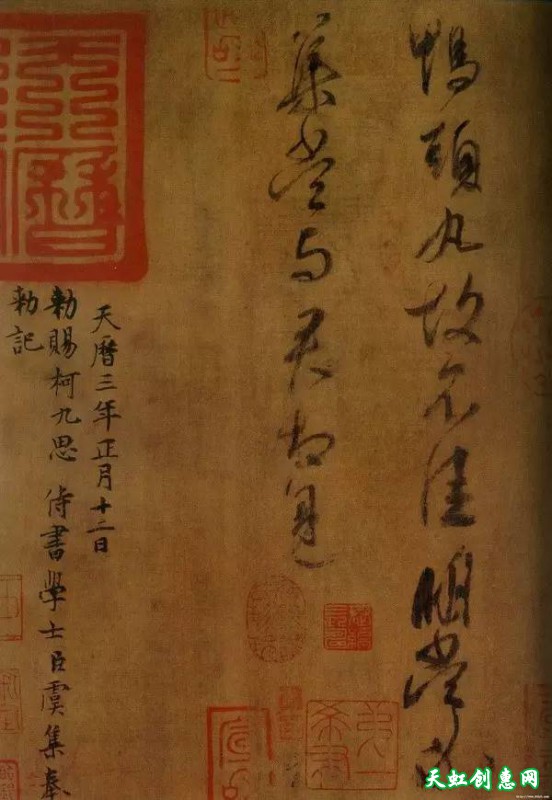 鴨頭丸故不佳明當必
集當与君相見
天曆三年正月十二日
勅賜柯九思 侍書學士臣虞集奉
勅記
天虹创惠网